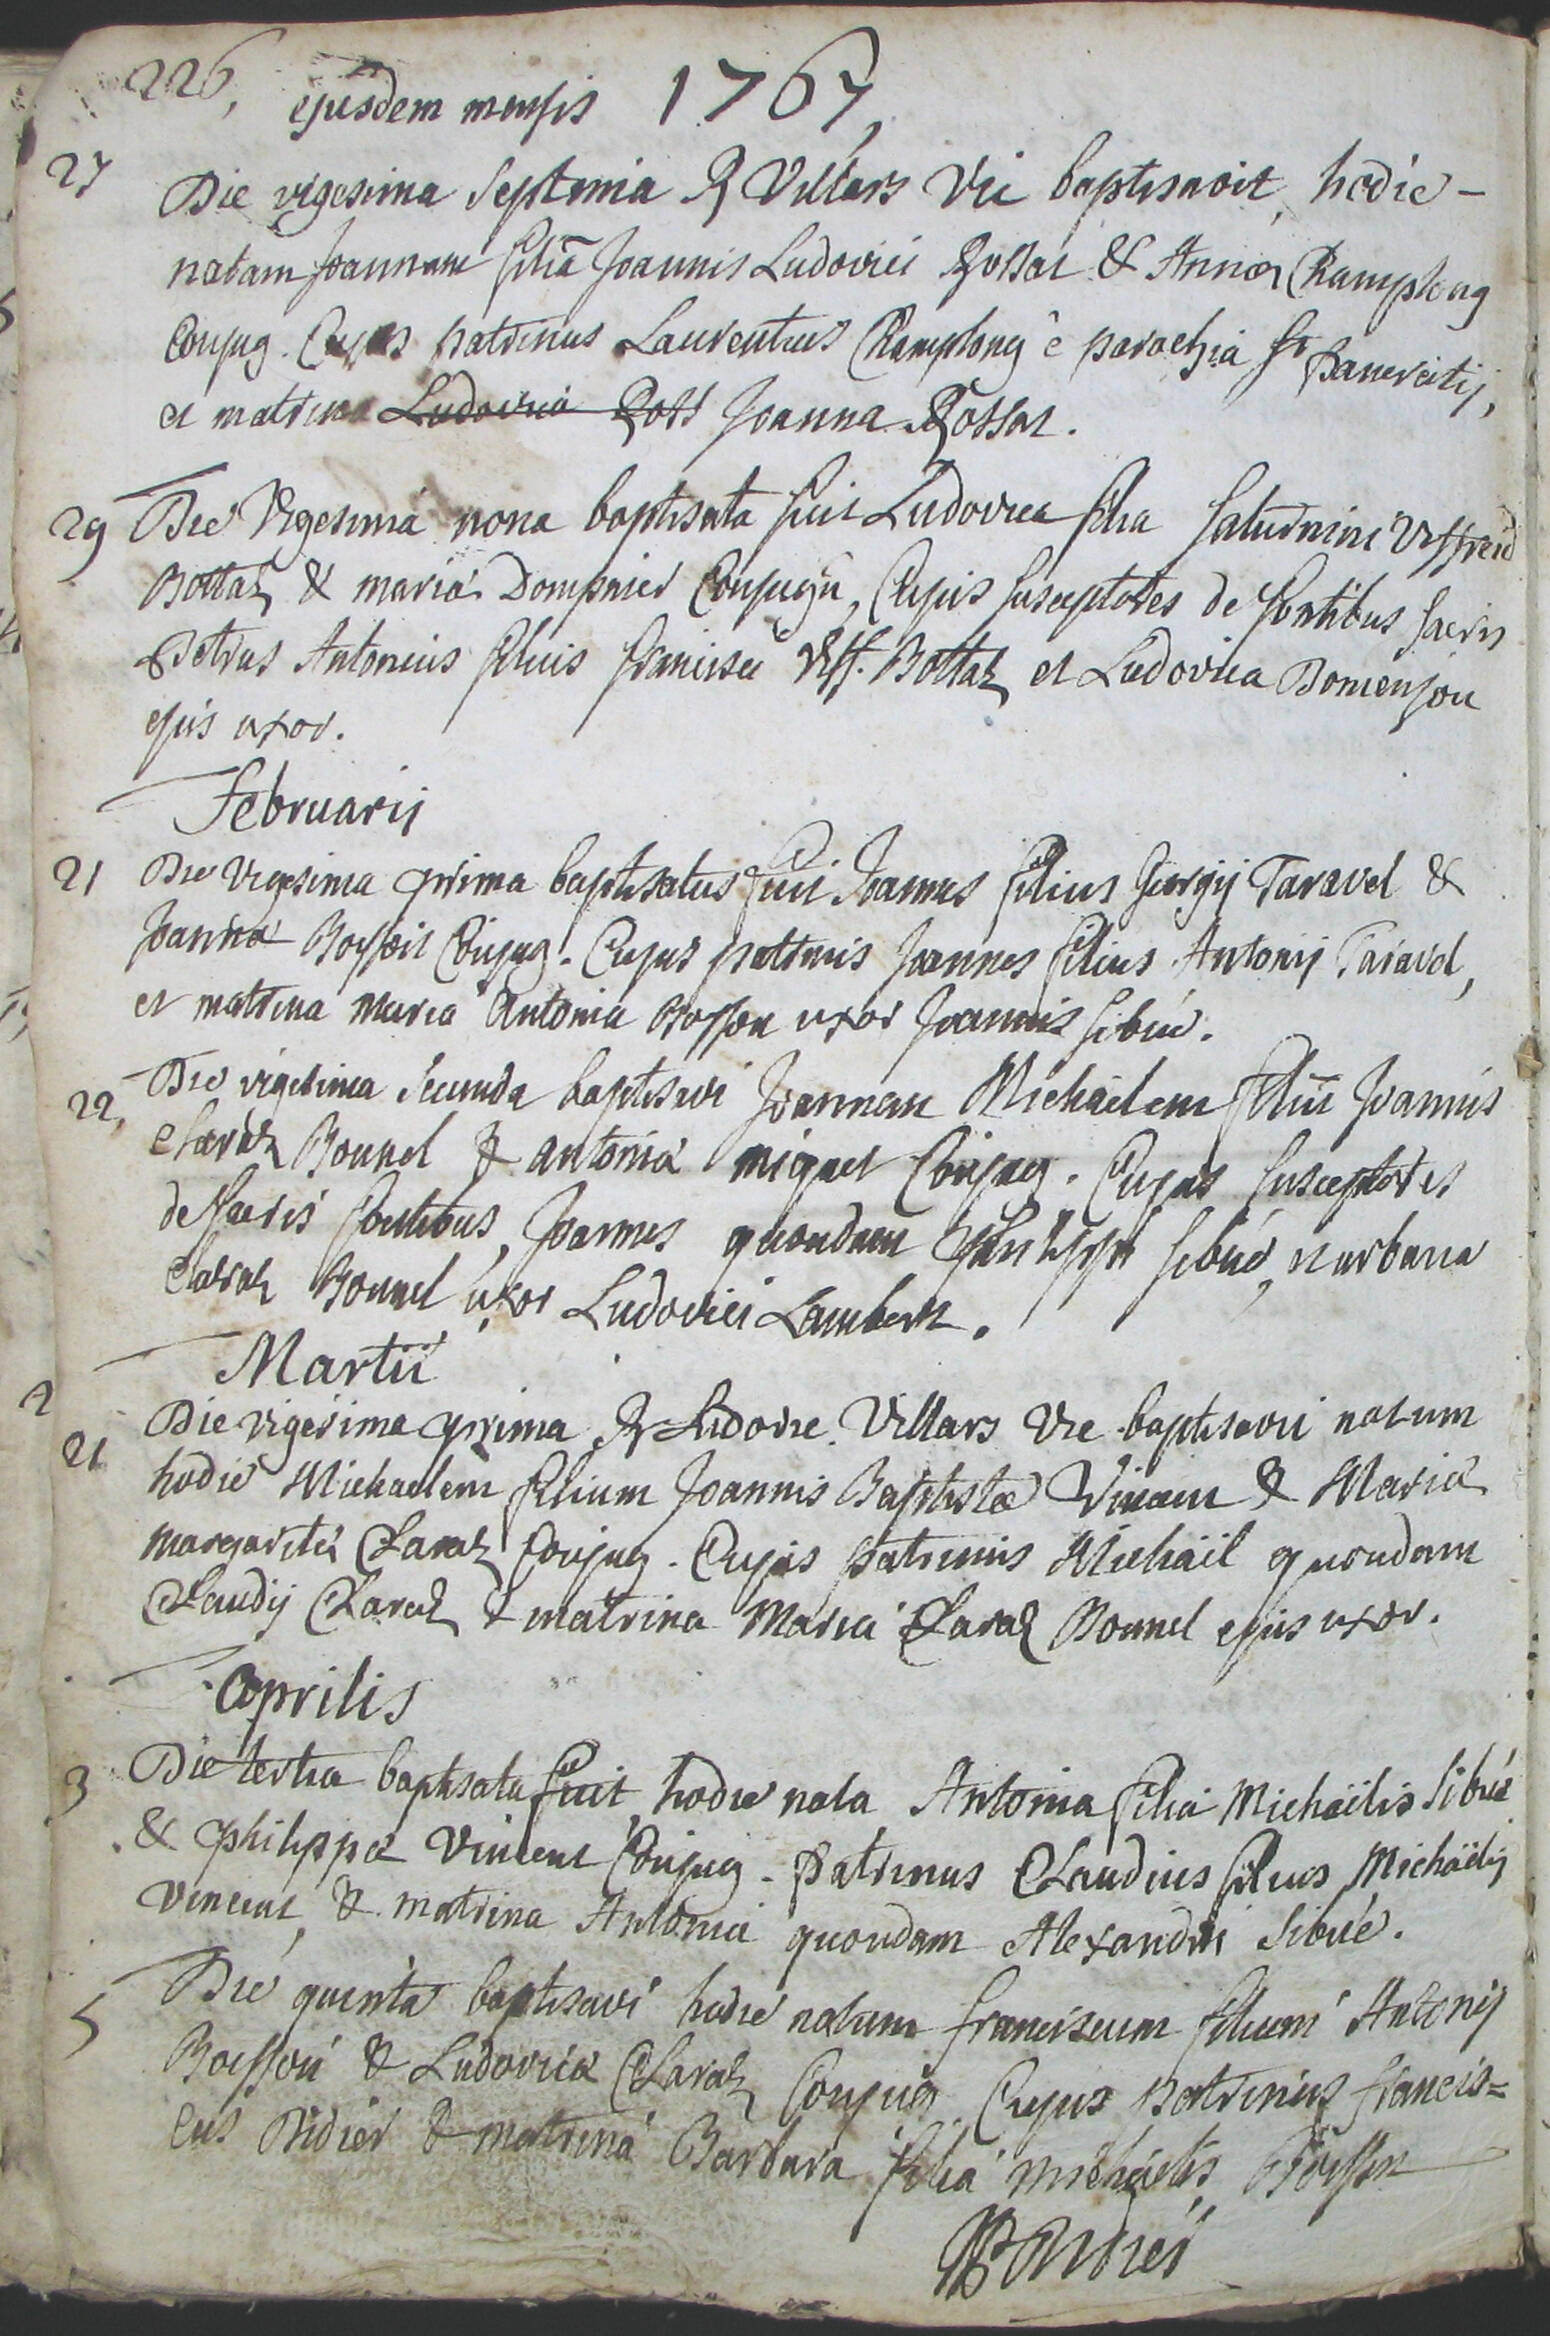 226,
ejusdem mensis 1767,
27 Die vigesima Septima R Villars Vic baptisavit, hodie -
natam Joannam filiã Joannis Ludovici Rossat & Annæ Ramplong
Conjug. Cujus patrinus Laurentius Ramplong è parochia Sti Pancratij,
et matrina Ludovica Ross Joanna Rossat.
29 Die Vigesima nona baptisata fuit Ludovica filia Saturnini Viffreid
Bottaz & mariæ Dompnier Conjugũ, Cujus susceptores de fontibus sacris
Petrus Antonius filius francisci Viff. Bottaz et Ludovica Domenjon
ejus uxor.
Februarij
21 Die Vigesima prima baptisatus fuit Joannes filius Georgij Taravel &
Joannæ Boisson Conjug. Cujus patrinus Joannes filius Antonij Taravel,
et matrina maria Antonia Boisson uxor Joannis Sibué.
22, Die vigesima Secunda baptisavi Joannem Michaelem filiũ Joannis
Claraz Bonnel & antoniæ miquet Conjug. Cujus susceptores
de sacris fontibus, Joannes quondam philippi Sibué,
Claraz Bonnel uxor Ludovici Lambert.
Martii
21 Die vigesima prima R Ludovic. Villars Vic baptisavit natum
hodie Michaelem filium Joannis Baptistæ Vincent & Mariæ
Margaritæ Claraz Conjug. Cujus patrinus Michaël quondam
Claudij Claraz & matrina Maria Claraz Bonnel ejus uxor.
Aprilis
3 Die tertia baptisata fuit, hodie nata Antonia filia Michaëlis Sibué
& philippæ Vincent Conjug. Patrinus Claudius filius Michaëlis
Vincent, & matrina Antonia quondam Alexandri Sibué.
5 Die quinta baptisavi hodie natum franciscum filium Antonij
Boisson & Ludovicæ Claraz Conjug Cujus patrinus francis=
cus Didier & matrina Barbara filia michaelis Boisson